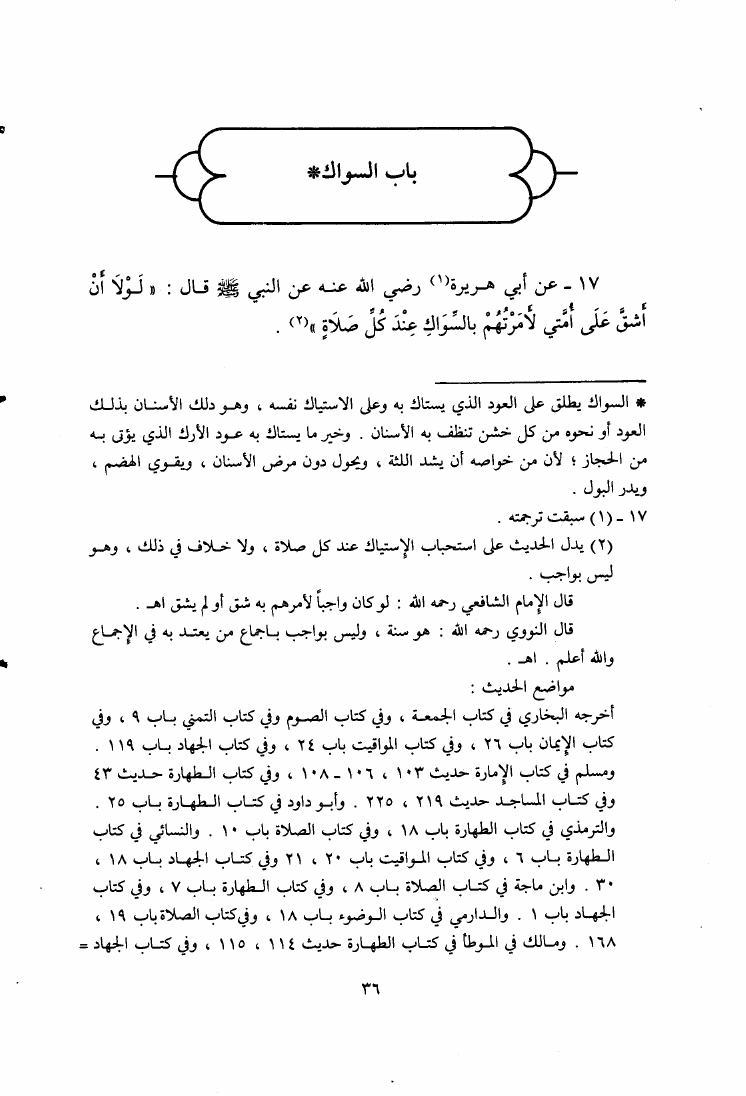 باب السواك*
١٧ ـ عن أبي هـريرة(١) رضي الله عنـه عن النبي ﷺ قـال : « لَـوْلَا أَنْ
أَشقَّ عَلَى أُمَّتي لَأَمَرْتُهُمْ بالسِّوَاكِ عِنْدَ كُلِّ صَلَاةٍ »(٢) .
* السواك يطلق على العود الذي يستاك به وعلى الاستياك نفسه ، وهـو دلك الأسنـان بذلـك
العود أو نحوه من كل خشن تنظف به الأسنان . وخير ما يستاك به عـود الأرك الذي يؤتى بـه
من الحجاز ؛ لأن من خواصه أن يشد اللثة ، ويحول دون مرض الأسنان ، ويقـوي الهضم ،
ويدر البول .
١٧ ـ (١) سبقت ترجمته .
(٢) يدل الحديث على استحباب الإستياك عند كل صلاة ، ولا خـلاف في ذلك ، وهـو
ليس بواجب .
قال الإمام الشافعي رحمه الله : لو كان واجباً لأمرهم به شق أو لم يشق اهـ .
قال النووي رحمه الله : هو سنة ، وليس بواجب بـاجماع من يعتـد به في الإجمـاع
والله أعلم . اهـ .
مواضع الحديث :
أخرجه البخاري في كتاب الجمعـة ، وفي كتاب الصـوم وفي كتاب التمني بـاب ٩ ، وفي
كتاب الإيمان باب ٢٦ ، وفي كتاب المواقيت باب ٢٤ ، وفي كتاب الجهاد بـاب ١١٩ .
ومسلم في كتاب الإمارة حديث ١٠٣ ، ١٠٦ ـ ١٠٨ ، وفي كتاب الـطهارة حـديث ٤٣
وفي كتـاب المساجـد حديث ٢١٩ ، ٢٢٥ . وأبـو داود في كتـاب الـطهـارة بـاب ٢٥ .
والترمذي في كتاب الطهارة باب ١٨ ، وفي كتاب الصلاة باب ١٠ . والنسائي في كتاب
الـطهارة بـاب ٦ ، وفي كتاب المـواقيت باب ٢٠ ، ٢١ وفي كتـاب الجهـاد بـاب ١٨ ،
٣٠ . وابن ماجة في كتـاب الصلاة بـاب ٨ ، وفي كتاب الـطهارة بـاب ٧ ، وفي كتاب
الجهـاد باب ١ . والـدارمي في كتاب الـوضوء بـاب ١٨ ، وفي كتاب الصلاة باب ١٩ ،
١٦٨ . ومـالك في المـوطأ في كتـاب الطهـارة حديث ١١٤ ، ١١٥ ، وفي كتـاب الجهاد =
٣٦